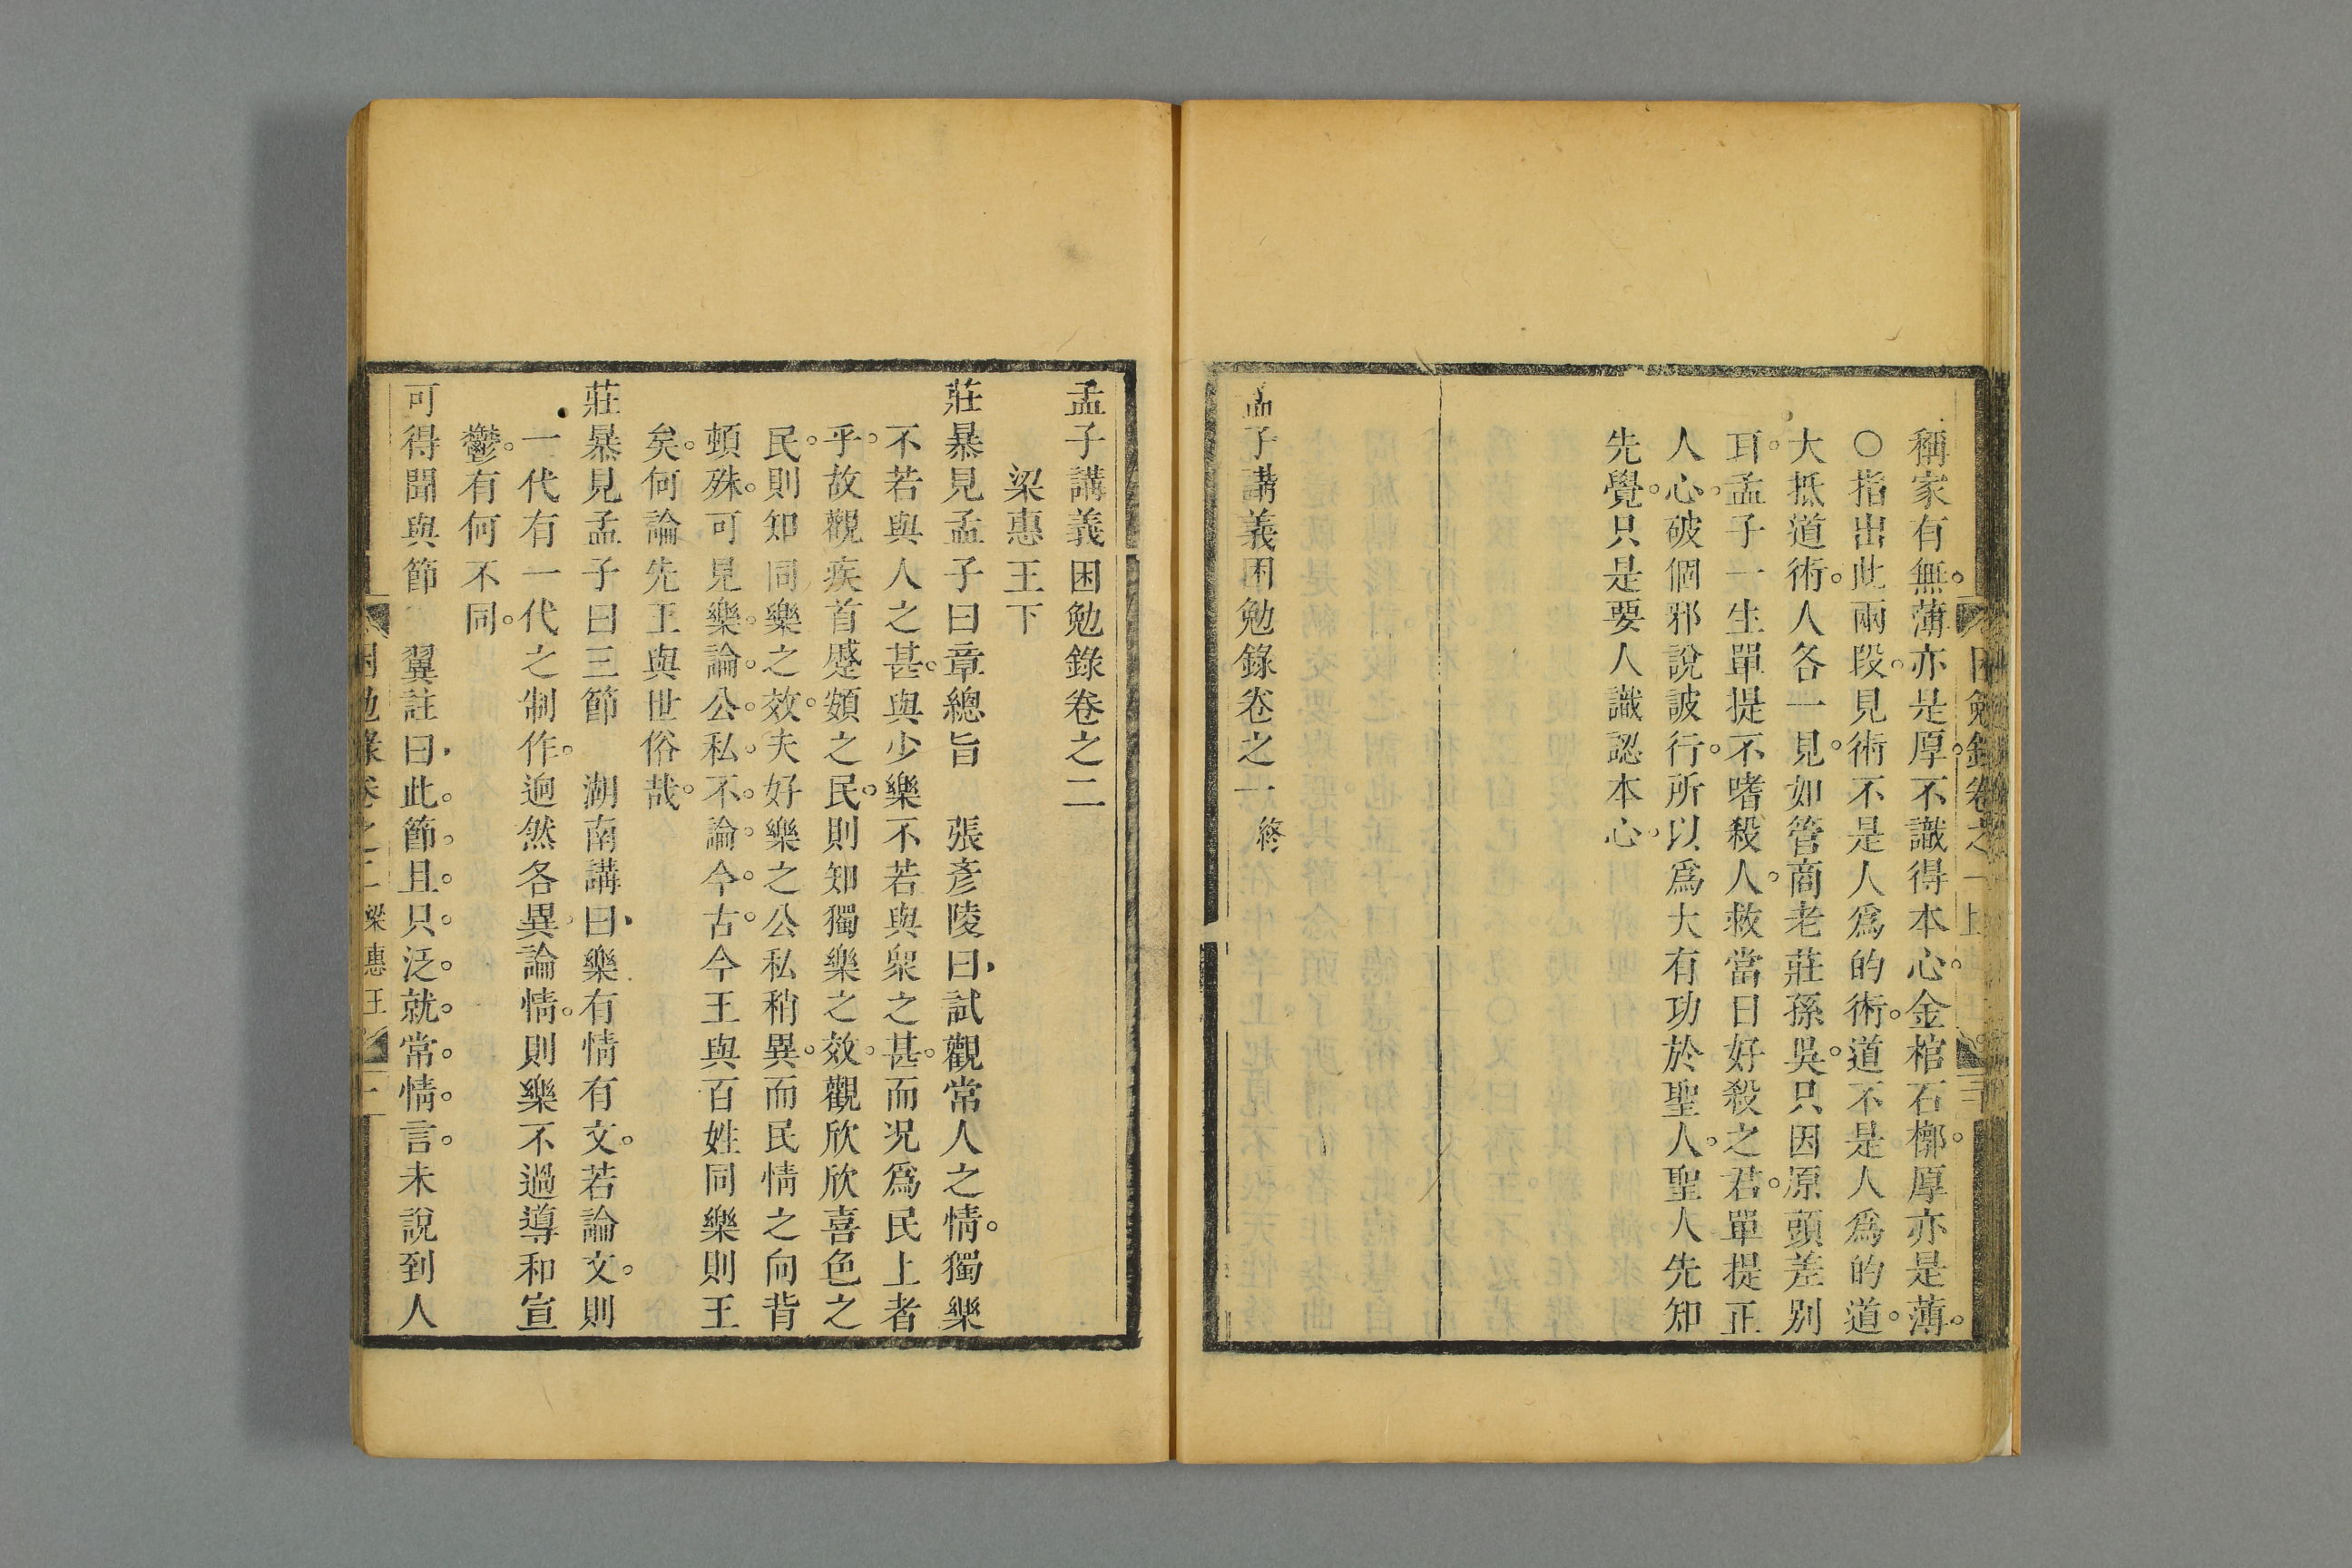 稱家有無。薄亦是厚。不識得本心。金棺石槨。厚亦是薄。
○指出此兩段。見術不是人爲的術。道不是人爲的道。
大抵道術。人各一見。如管商老莊孫吳。只因原頭差別
耳。孟子一生單提不嗜殺人。救當日好殺之君。單提正
人心。破個邪說詖行。所以爲大有功於聖人。聖人先知
先覺。只是要人識認本心。
孟子講義困勉錄卷之一 終
孟子講義困勉錄卷之二
梁惠王下
莊暴見孟子曰章總旨 張彥陵曰、試觀常人之情。獨樂
不若與人之甚。與少樂不若與衆之甚。而况爲民上者
乎。故觀疾首蹙頞之民。則知獨樂之效。觀欣欣喜色之
民。則知同樂之效。夫好樂之公私稍異。而民情之向背
頓殊。可見樂。論。公。私。不。論。今。古。今王與百姓同樂則王
矣。何論先王與世俗哉。
莊暴見孟子曰三節 湖南講曰、樂有情有文。若論文。則
一代有一代之制作。迥然各異。論情。則樂不過導和宣
鬱。有何不同。
可得聞與節 翼註曰、此。節。且。只。泛。就。常。情。言。未說到人
困勉錄卷之二 梁惠王 一